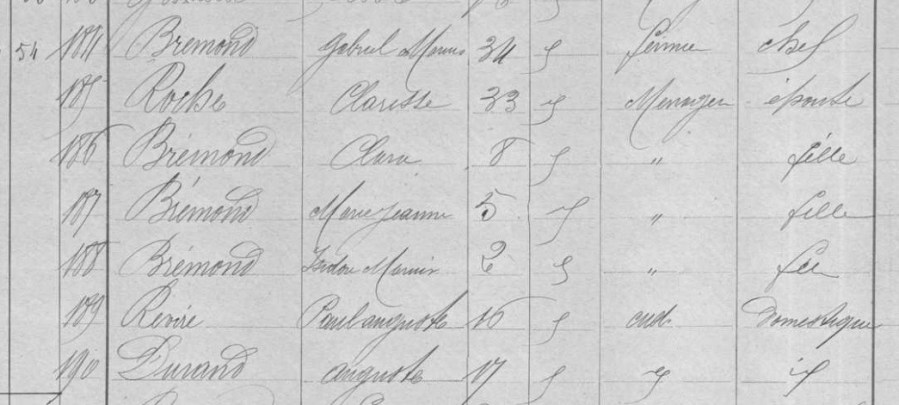 54 184 Brémond Gabriel Marius 34 fermier chef
185 Roche Clarisse 33 Menagère épouse
186 Brémond Clara 8 " fille
187 Brémond Marie Jeanne 5 " fille
188 Brémond Isidore Marius 2 " fils
189 Revire Paul auguste 16 cult. Domestique
190 Durand auguste 17